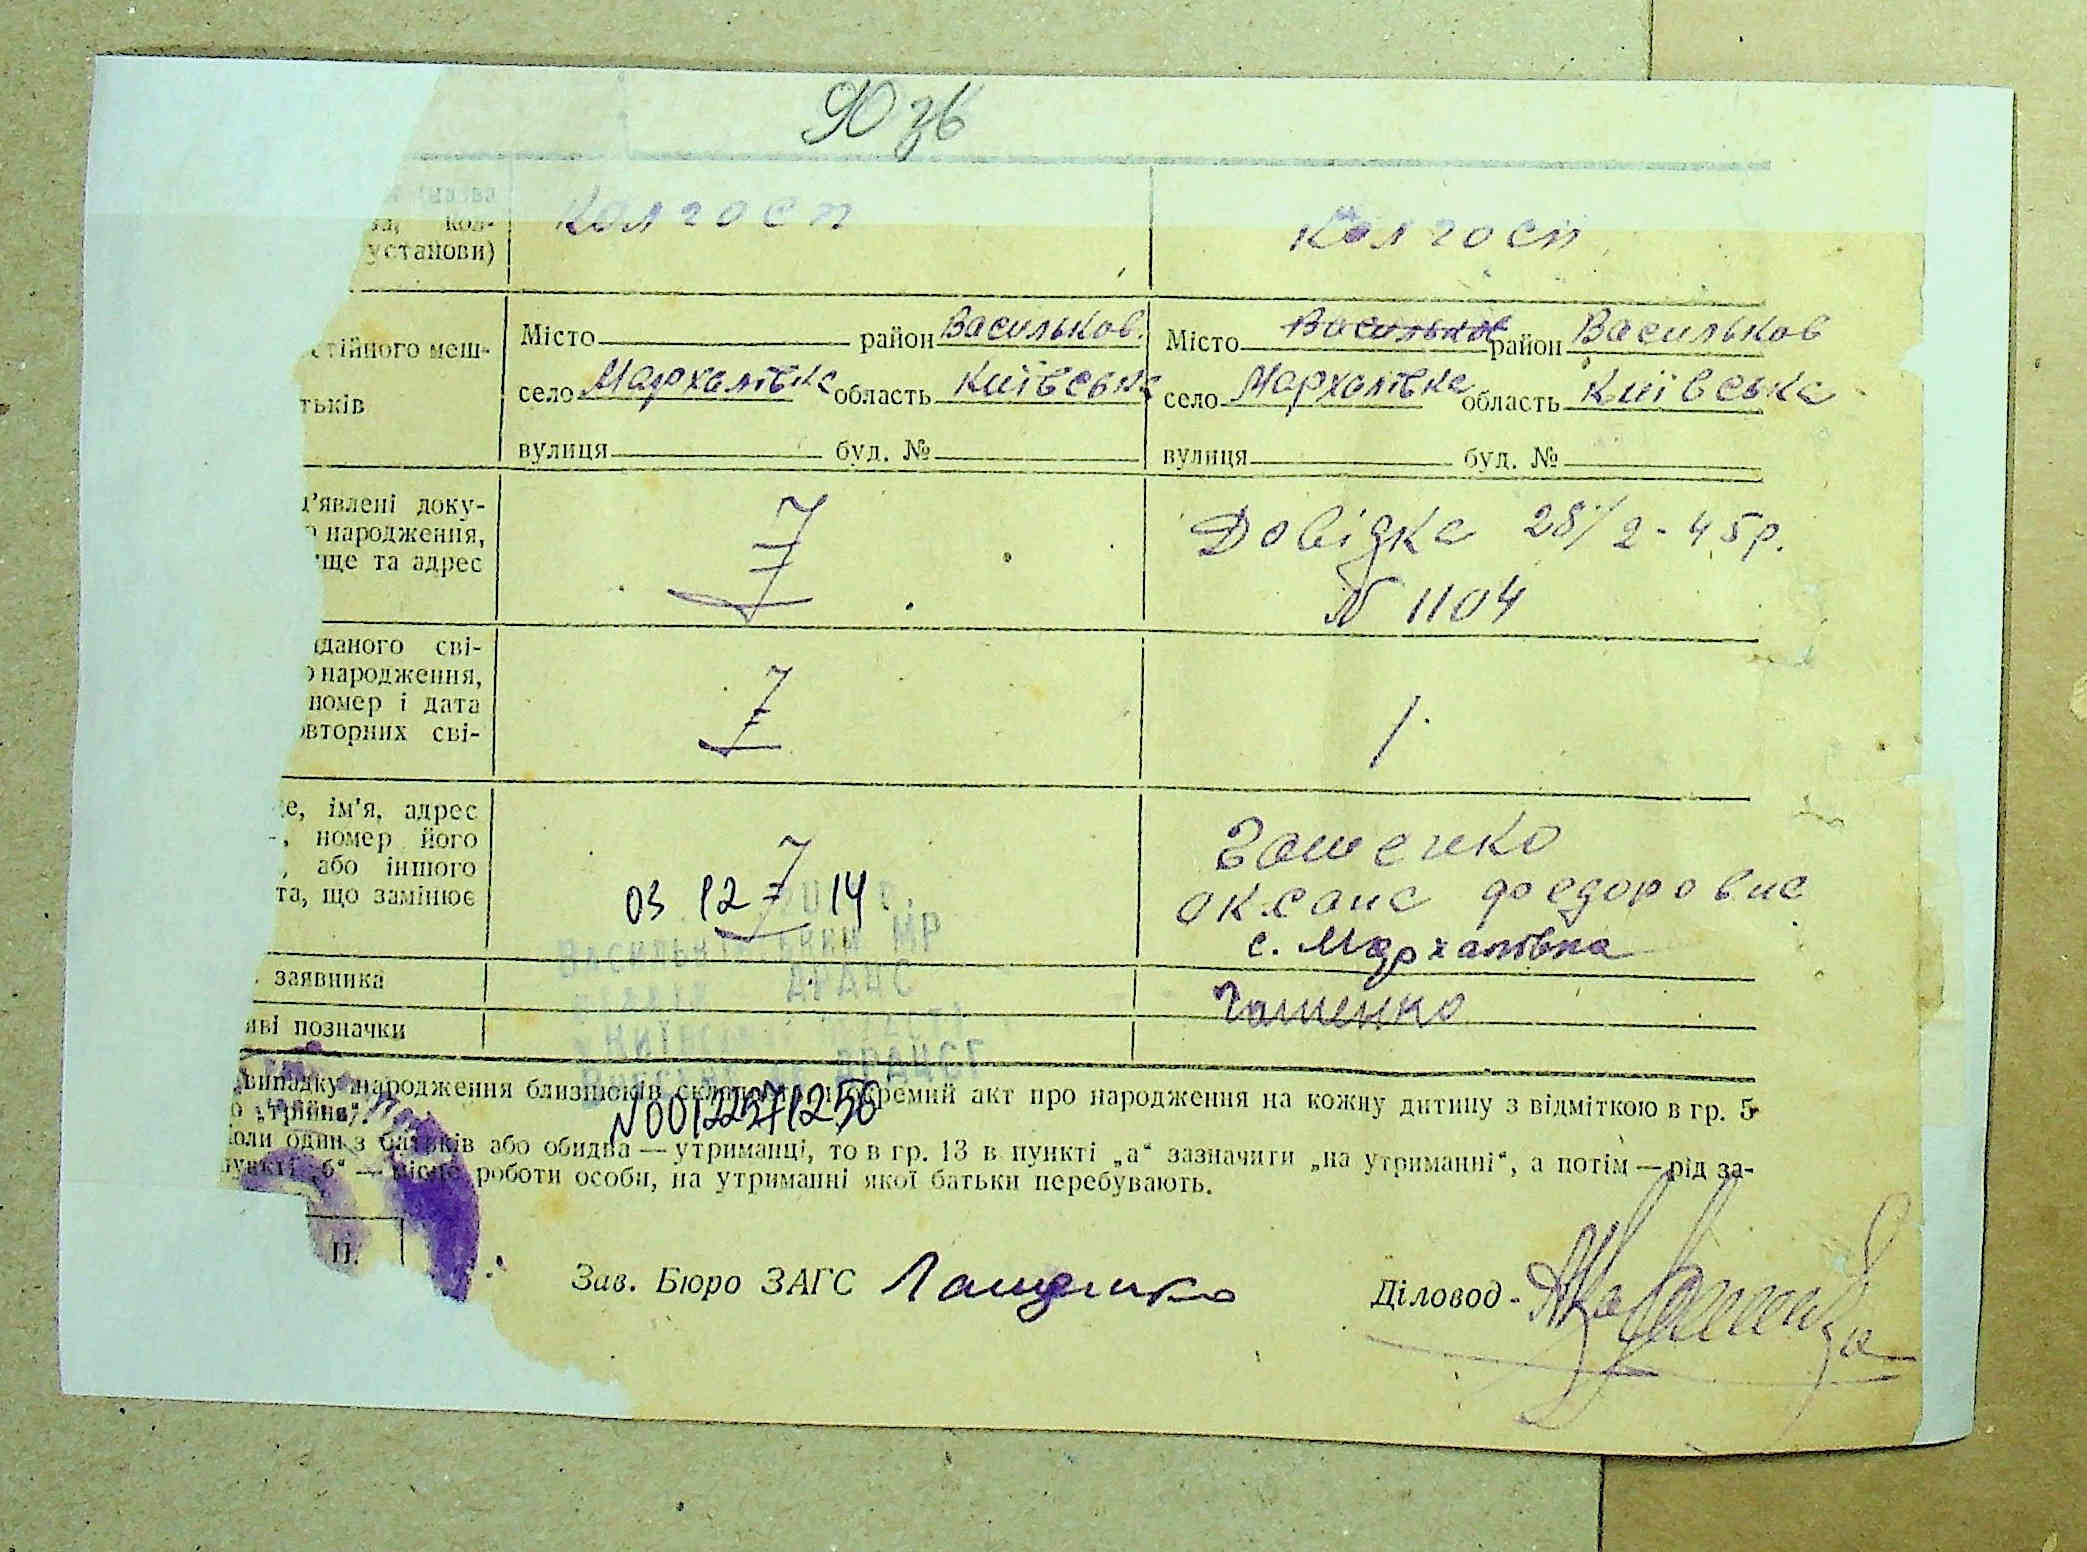 90 зв
за, кол-
установи)
Колгосп
Колгосп
стійного меш-
тьків
Місто район Васильков.
село Мархалівка область Київська
вулиця буд. №
Місто Васильков район Васильков
село Мархалівка область Київська
вулиця буд. №
д'явлені доку-
о народження,
ище та адрес
Довідка 28/2 - 45 р.
N 1104
иданого сві-
о народження,
номер і дата
овторних сві-
е, ім'я, адрес
-, номер його
, або іншого
та, що замінює
03 12 14
Васильківський МР
ДРАЦС
Гошенко
Оксана Федоровна
с. Мархалівка
заявника
Гошенко
иві позначки
випадку народження близнюків окремий акт про народження на кожну дитину з відміткою в гр. 5
о „трійня“.
Коли один з батьків або обидва — утриманці, то в гр. 13 в пункті „а“ зазначити „на утриманні“, а потім — рід за-
пункті „б“ — місце роботи особи, на утриманні якої батьки перебувають.
N00122371250
П.
Зав. Бюро ЗАГС Лащенко
Діловод -